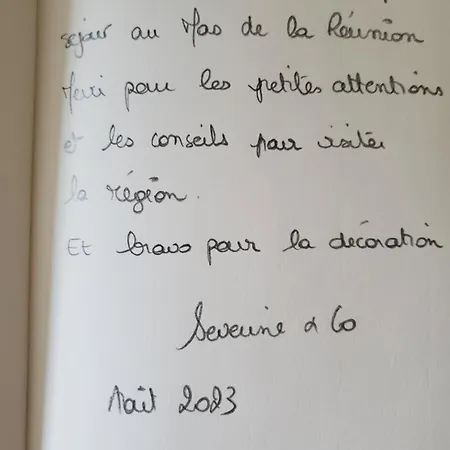 séjour au Mas de la Réunion
Merci pour les petites attentions
et les conseils pour visiter
la région.
Et bravo pour la décoration
Severine & Co
Août 2023